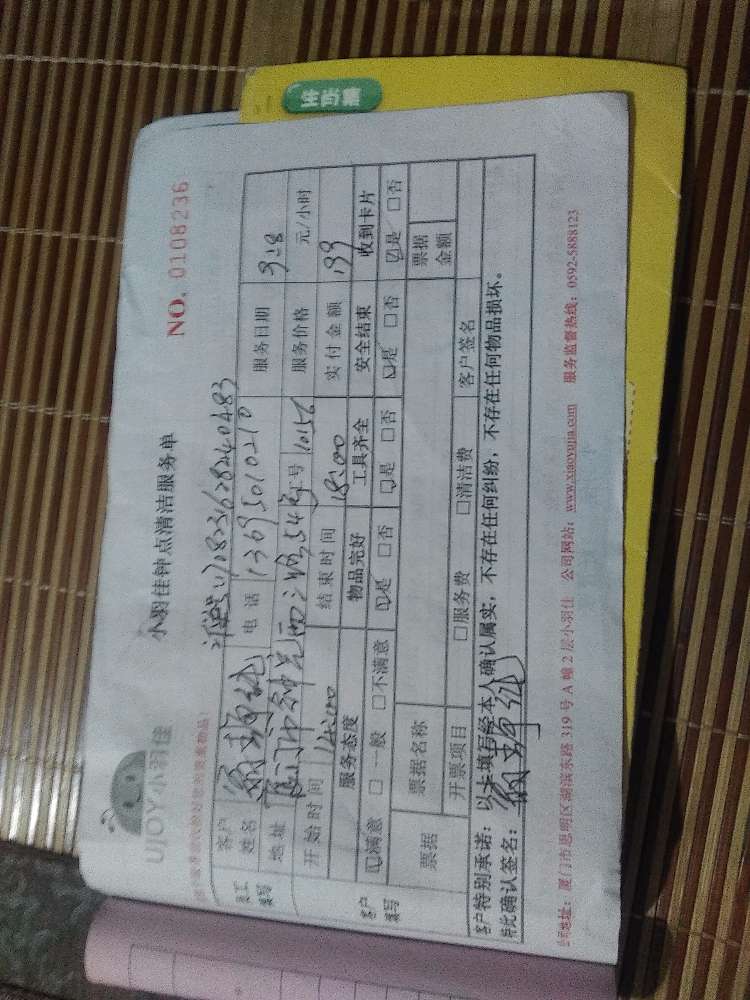 UIOY小羽佳
小羽佳钟点清洁服务单
NO. 0108236
18231628240483
员工填写
客户姓名
电话 13695010210
服务日期
地址
工号 10156
服务价格 元/小时
开始时间 14:00
结束时间 18:00
实付金额 199
客户填写
服务态度 物品完好 工具齐全 安全结束 收到卡片
☑满意 □一般 □不满意 ☑是 □否 ☑是 □否 ☑是 □否 ☑是 □否
票据 票据名称 票据金额
开票项目 □服务费 □清洁费 客户签名
客户特别承诺：以上填写经本人确认属实，不存在任何纠纷，不存在任何物品损坏。
特此确认签名：
公司地址：厦门市思明区湖滨东路 319 号 A 幢 2 层小羽佳 公司网站：www.xiaoyujia.com 服务监督热线：0592-5888123